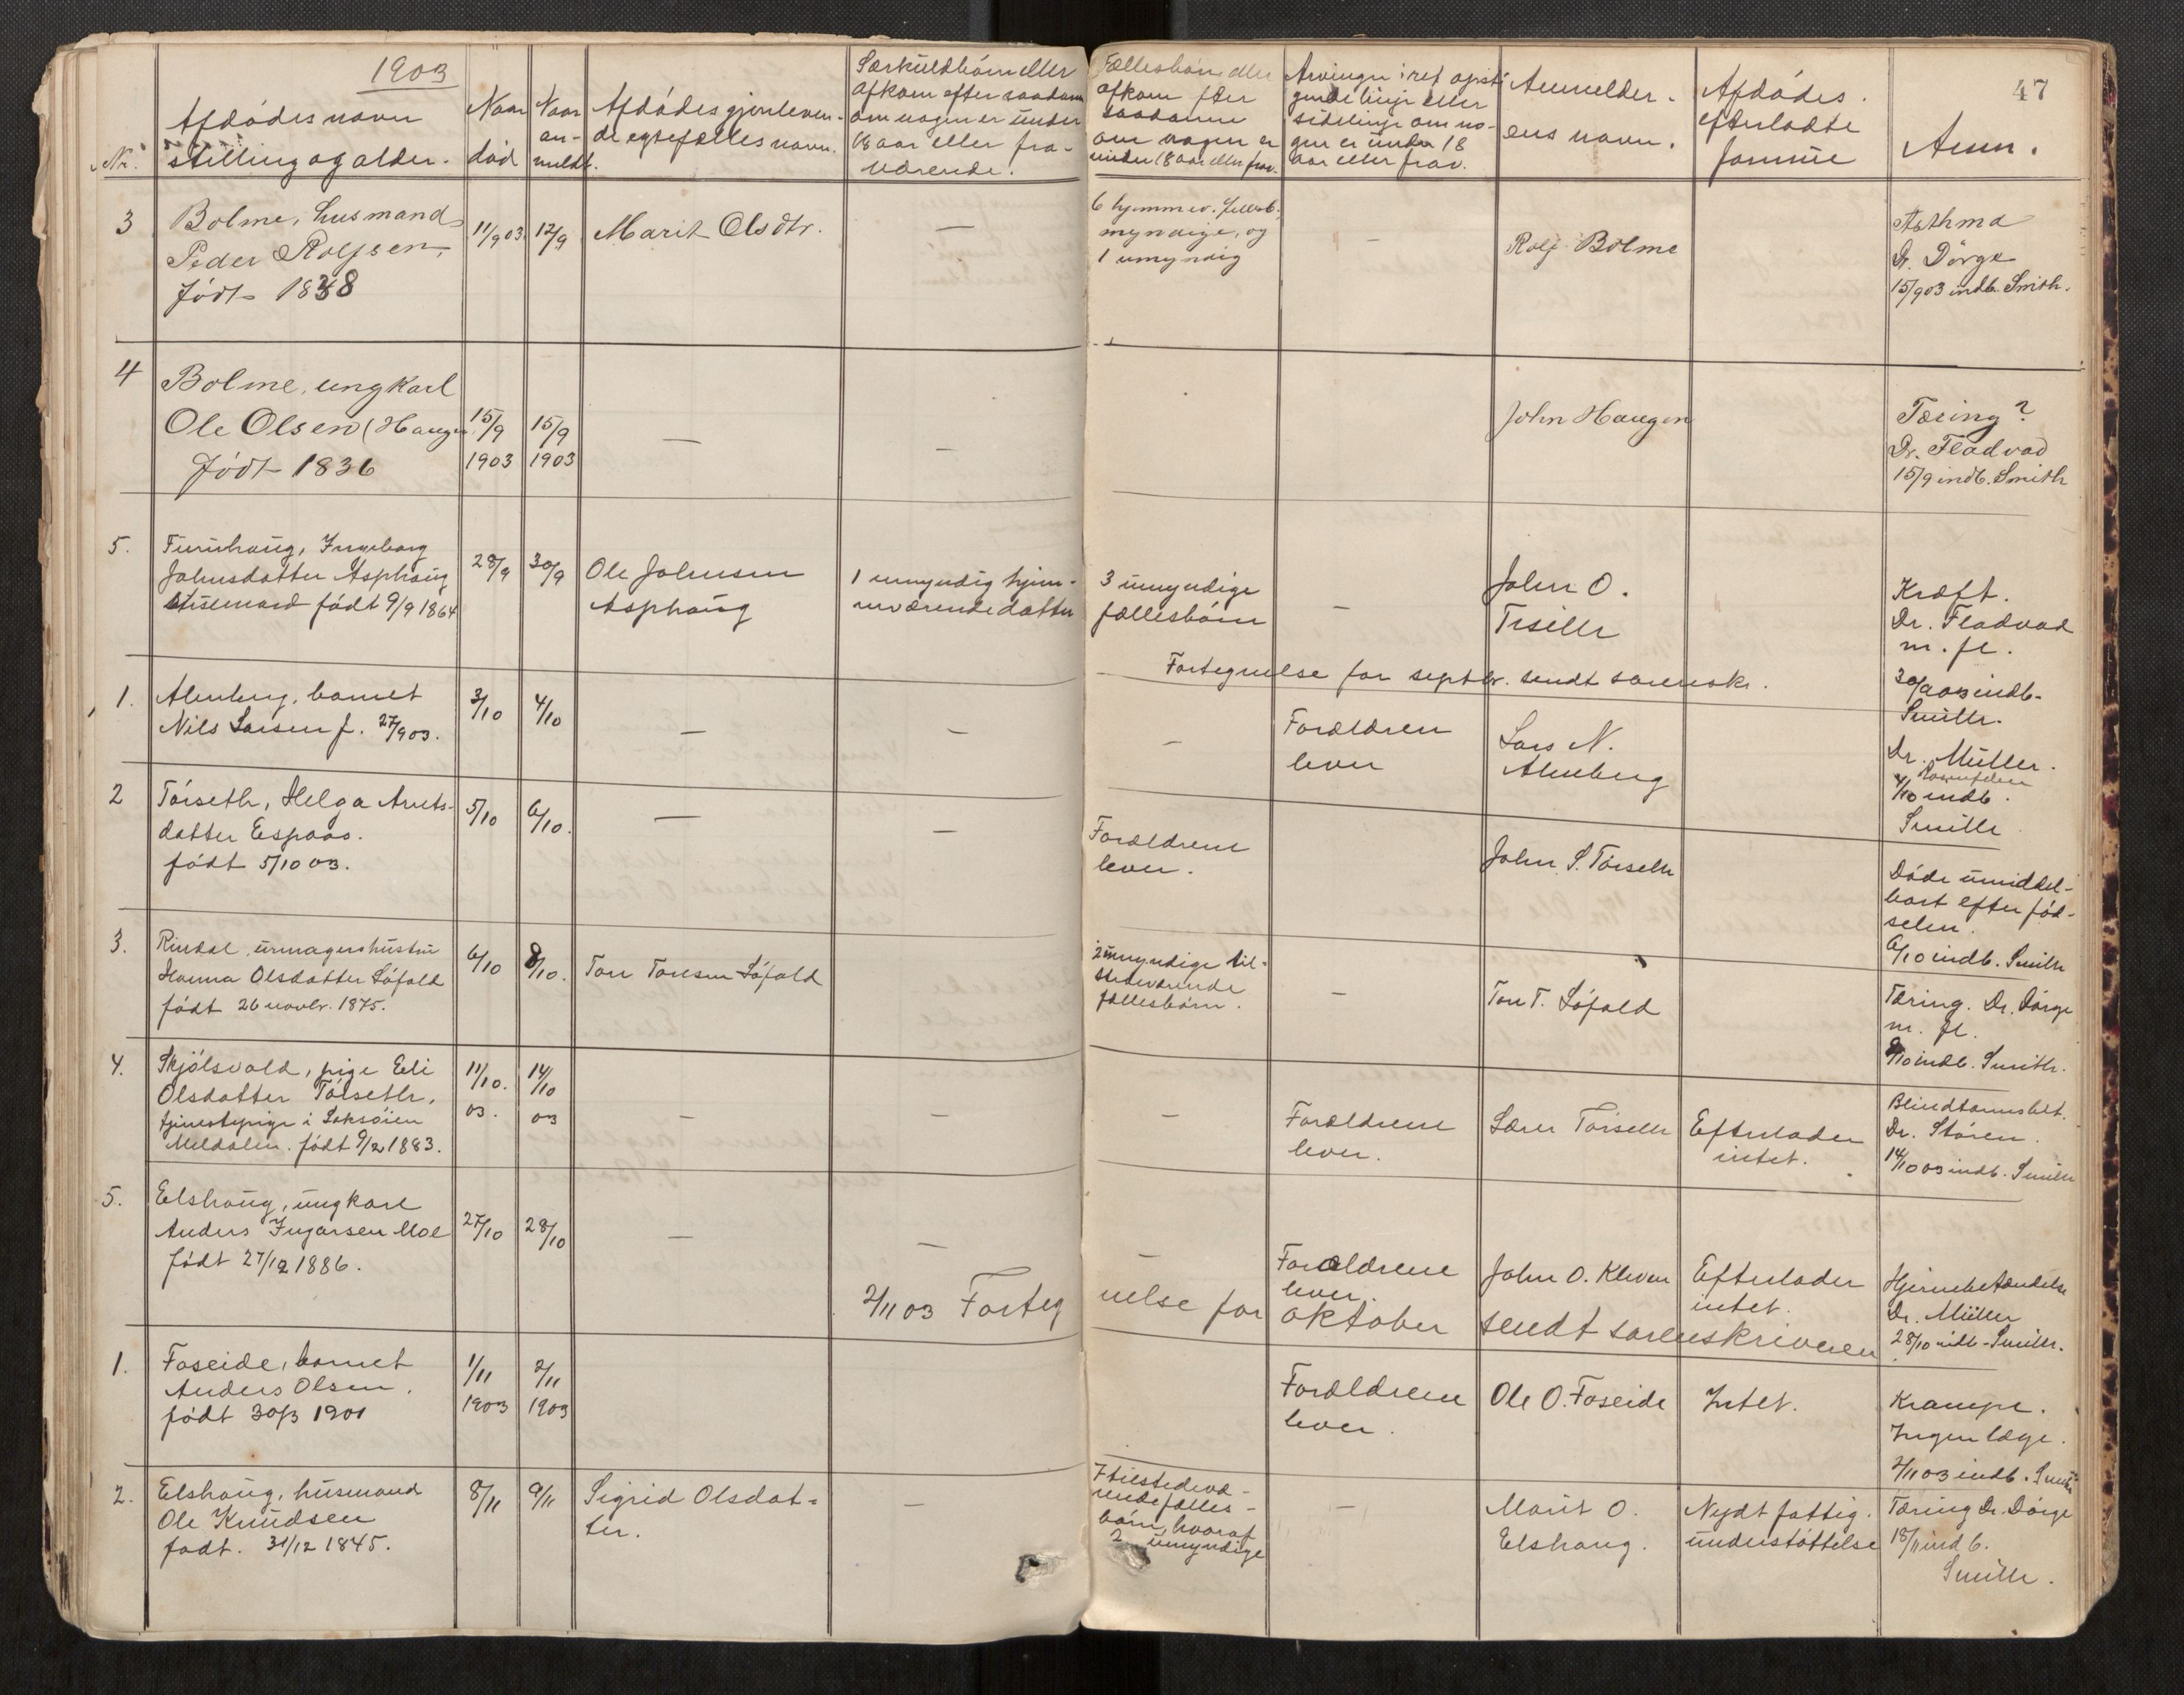 1903
47
Nr.
Afdödes navn
stilling og alder.
Naar
död
Naar
an-
meldt.
Afdödes gjenleven-
de egtefælles navn.
Særkuldbörn eller
afkom efter saadann
om nogen er under
18 aar eller fra-
værende.
Fællesbörn eller
afkom efter
saadanne
om nogen er
under 18 aar eller frav.
Arvinger i ret opsti-
gende linje eller
sidelinje om no-
gen er under 18
aar eller frav.
Anmelder-
ens navn.
Afdödes
efterladte
formue
Anm.
3
Bolme, husmand
Peder Rolfsen,
födt 1838
11/9 03
12/9
Marit Olsdtr.
—
6 hjemmev. fællesb.
myndige, og
1 umyndig
—
Rolf Bolme
Asthma
Dr. Dörge
15/9 03 indb. Smith.
4
Bolme, ungkarl
Ole Olsen (Haugen
födt 1836
15/9
1903
15/9
1903
—
—
John Haugen
Tæring?
Dr. Flodvad
15/9 indb. Smith
5.
Furuhaug, Ingeborg
Johnsdatter Asphaug
födt 9/9 1864
28/9
30/9
Ole Johnsen
Asphaug
1 umyndig hjem-
meværende datter
3 umyndige
fællesbörn
—
John O.
Træth
Kræft.
Dr. Flodvad
m. fl.
30/9 03 indb.
Smith.
Fortegnelse for septbr. sendt sorenskr.
1.
Almberg, barnet
Nils Larsen f. 27/9 03.
3/10
4/10
—
—
—
Forældren
lever
Lars N.
Almberg
Dr. Müller.
4/10 indb.
Smith
2
Törseth, Helga Arnts-
datter Espaas.
födt 5/10 03.
5/10
6/10.
—
—
Forældrene
lever.
John S. Törseth
Döde umiddel-
bart efter föd-
selen.
6/10 indb. Smith
3.
Rindal, urmagershustru
Hanna Olsdatter Löfald
födt 26 novbr. 1875.
6/10
8/10.
Tore Toresen Löfald
2 umyndige til-
stedeværende
fællesbörn.
—
Tore T. Löfald
Tæring. Dr. Dörge
m. fl.
8/10 indb. Smith.
4.
Skjölsvold, pige Eli
Olsdatter Törseth,
tjenestepige i Löksöien
Meldalen. födt 9/2 1883.
11/10.
03.
14/10
03
—
—
—
Forældrene
lever.
Lærer Törseth
Efterlader
intet.
Blindtarmsbet.
Dr. Stören.
14/10 03 indb. Smith
5.
Elshaug, ungkarl
Anders Ingarsen Moe
födt 27/12 1886.
27/10
28/10
—
—
—
Forældrene
lever.
John O. Kleven
Efterlader
intet.
Hjernebetændelse
Dr. Müller
28/10 indb. Smith.
2/11 03 Forteg
nelse for oktober sendt sorenskriveren
1.
Foseide, barnet
Anders Olsen.
födt 30/3 1901
1/11
1903
2/11
1903
Forældrene
lever.
Ole O. Foseide
Intet.
Krampe.
Ingen læge.
2/11 03 indb. Smith
2.
Elshaug, husmand
Ole Knudsen
födt. 31/12 1845.
8/11
9/11
Sigrid Olsdat-
ter.
—
7 tilstedevæ-
rende fælles-
börn, hvoraf
2 umyndige
—
Marit O.
Elshaug.
Nydt fattig-
understöttelse
Tæring Dr. Dörge
18/11 indb.
Smith.